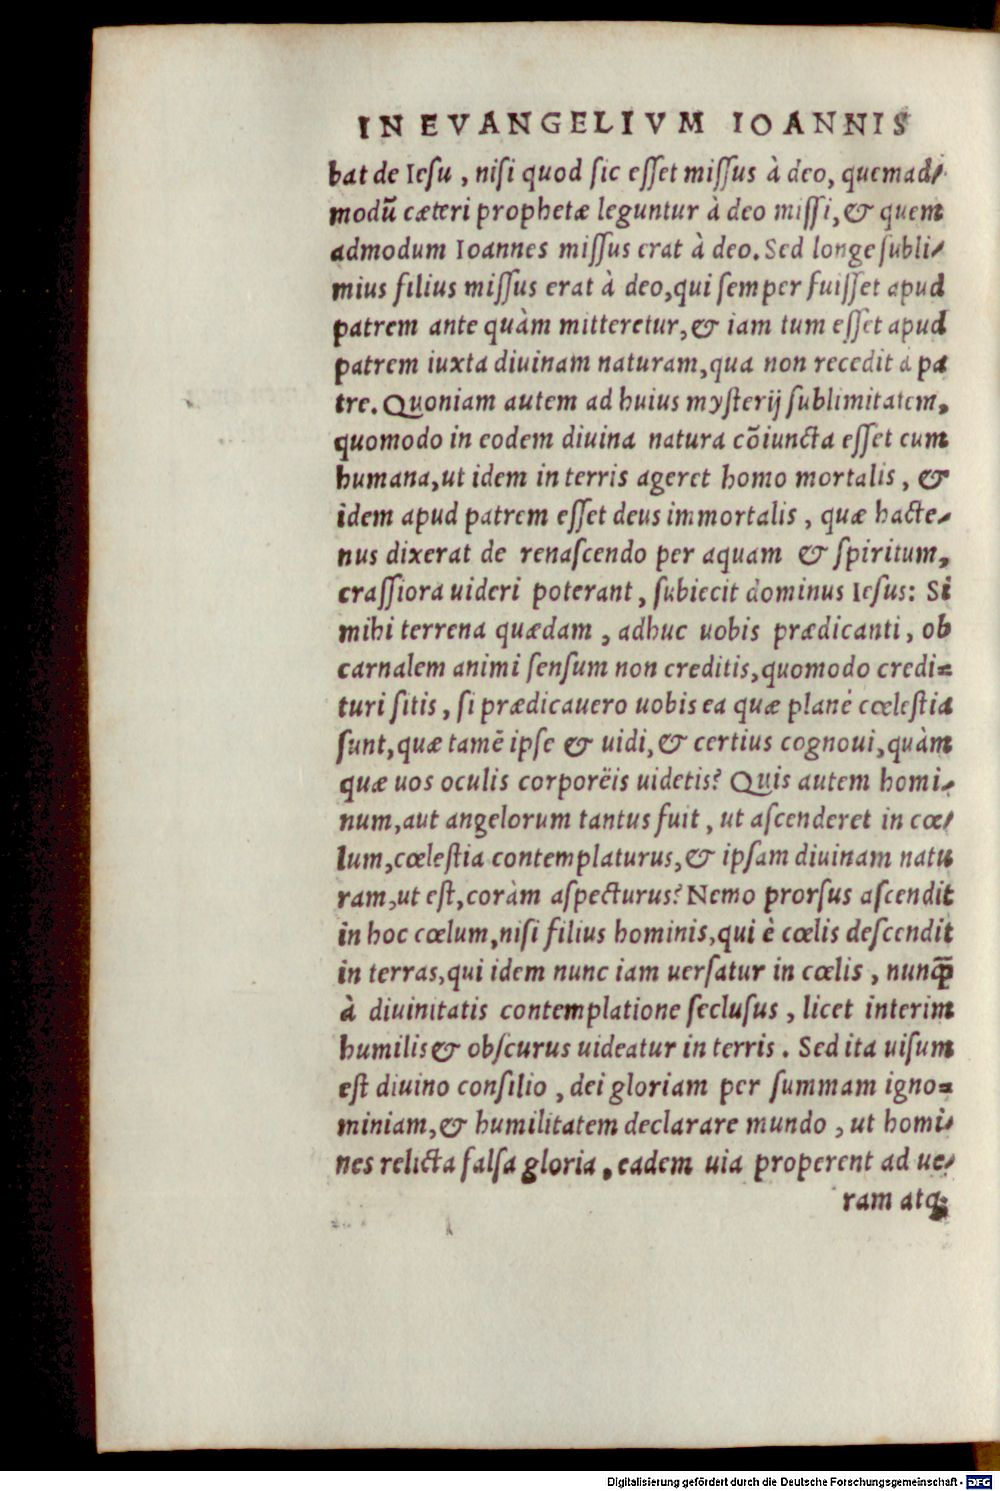 IN EVANGELIVM IOANNIS
bat de Iesu, nisi quod sic esset missus à deo, quemad/
modũ cæteri prophetæ leguntur à deo missi, & quem
admodum Ioannes missus erat à deo. Sed longe subli/
mius filius missus erat à deo, qui semper fuisset apud
patrem ante quàm mitteretur, & iam tum esset apud
patrem iuxta diuinam naturam, qua non recedit à pa
tre. Quoniam autem ad huius mysterij sublimitatem,
quomodo in eodem diuina natura cõiuncta esset cum
humana, ut idem in terris ageret homo mortalis, &
idem apud patrem esset deus immortalis, quæ hacte/
nus dixerat de renascendo per aquam & spiritum,
crassiora uideri poterant, subiecit dominus Iesus: Si
mihi terrena quædam, adhuc uobis prædicanti, ob
carnalem animi sensum non creditis, quomodo credi=
turi sitis, si prædicauero uobis ea quæ planè cœlestia
sunt, quæ tamẽ ipse & uidi, & certius cognoui, quàm
quæ uos oculis corporëis uidetis? Quis autem homi/
num, aut angelorum tantus fuit, ut ascenderet in cœ/
lum, cœlestia contemplaturus, & ipsam diuinam natu
ram, ut est, coràm aspecturus? Nemo prorsus ascendit
in hoc cœlum, nisi filius hominis, qui è cœlis descendit
in terras, qui idem nunc iam uersatur in cœlis, nunq̃
à diuinitatis contemplatione seclusus, licet interim
humilis & obscurus uideatur in terris. Sed ita uisum
est diuino consilio, dei gloriam per summam igno=
miniam, & humilitatem declarare mundo, ut homi/
nes relicta falsa gloria, eadem uia properent ad ue/
ram atq;
Digitalisierung gefördert durch die Deutsche Forschungsgemeinschaft - DFG